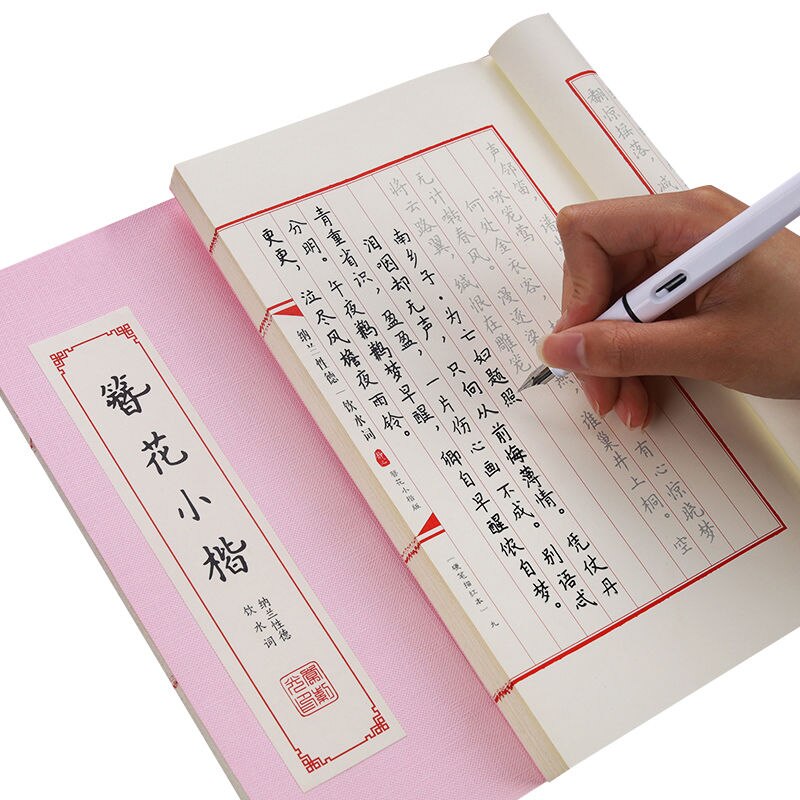 簪花小楷
纳兰性德
饮水词
翻惊摇落，减
声邻笛，
咏笼莺
何处金衣客，
有心惊晓梦
无计转春风。漫逐梁
谁巢井上桐。空
将云路翼，缄恨在雕笼
南乡子·为亡妇题照
泪咽却无声，只向从前悔薄情。凭仗丹
青重省识，盈盈，一片伤心画不成。别语忒
分明。午夜鹣鹣梦早醒，卿自早醒侬自梦。
更更，泣尽风檐夜雨铃。
纳兰性德｜饮水词
簪花小楷版
（硬笔描红本）
九